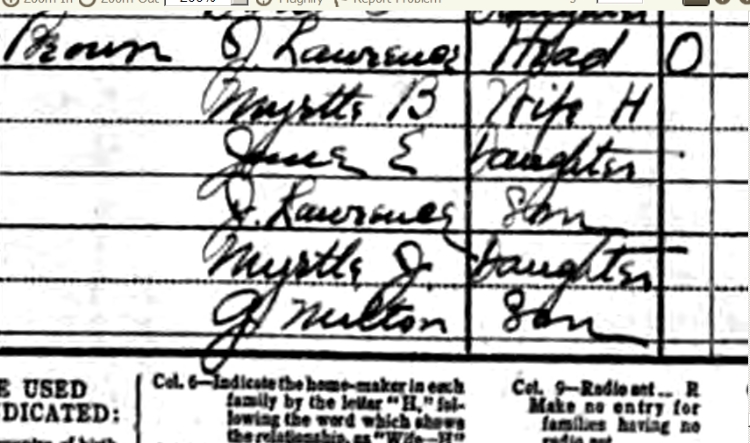 Zoom In Zoom Out 200% Magnify Report Problem
Brown J. Lawrence Head O
Myrtle B Wife H
June E Daughter
J. Lawrence Son
Myrtle J. Daughter
G Milton Son
E USED
DICATED:
Col. 6—Indicate the home-maker in each
family by the letter "H," fol-
lowing the word which shows
the relationship, as "Wife—H"
Col. 9—Radio set... R
Make no entry for
families having no
radio set